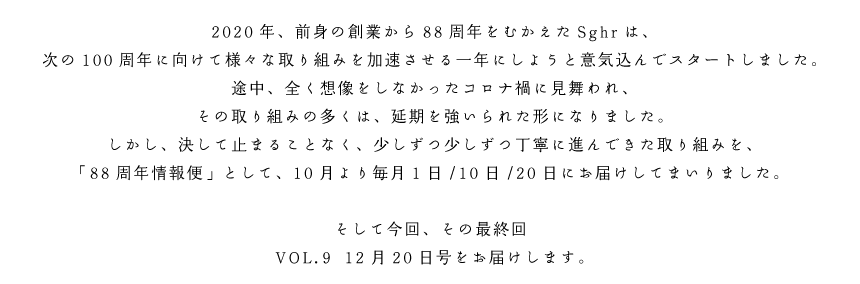 2020年、前身の創業から88周年をむかえたSghrは、
次の100周年に向けて様々な取り組みを加速させる一年にしようと意気込んでスタートしました。
途中、全く想像をしなかったコロナ禍に見舞われ、
その取り組みの多くは、延期を強いられた形になりました。
しかし、決して止まることなく、少しずつ少しずつ丁寧に進んできた取り組みを、
「88周年情報便」として、10月より毎月1日/10日/20日にお届けしてまいりました。
そして今回、その最終回
VOL.9 12月20日号をお届けします。